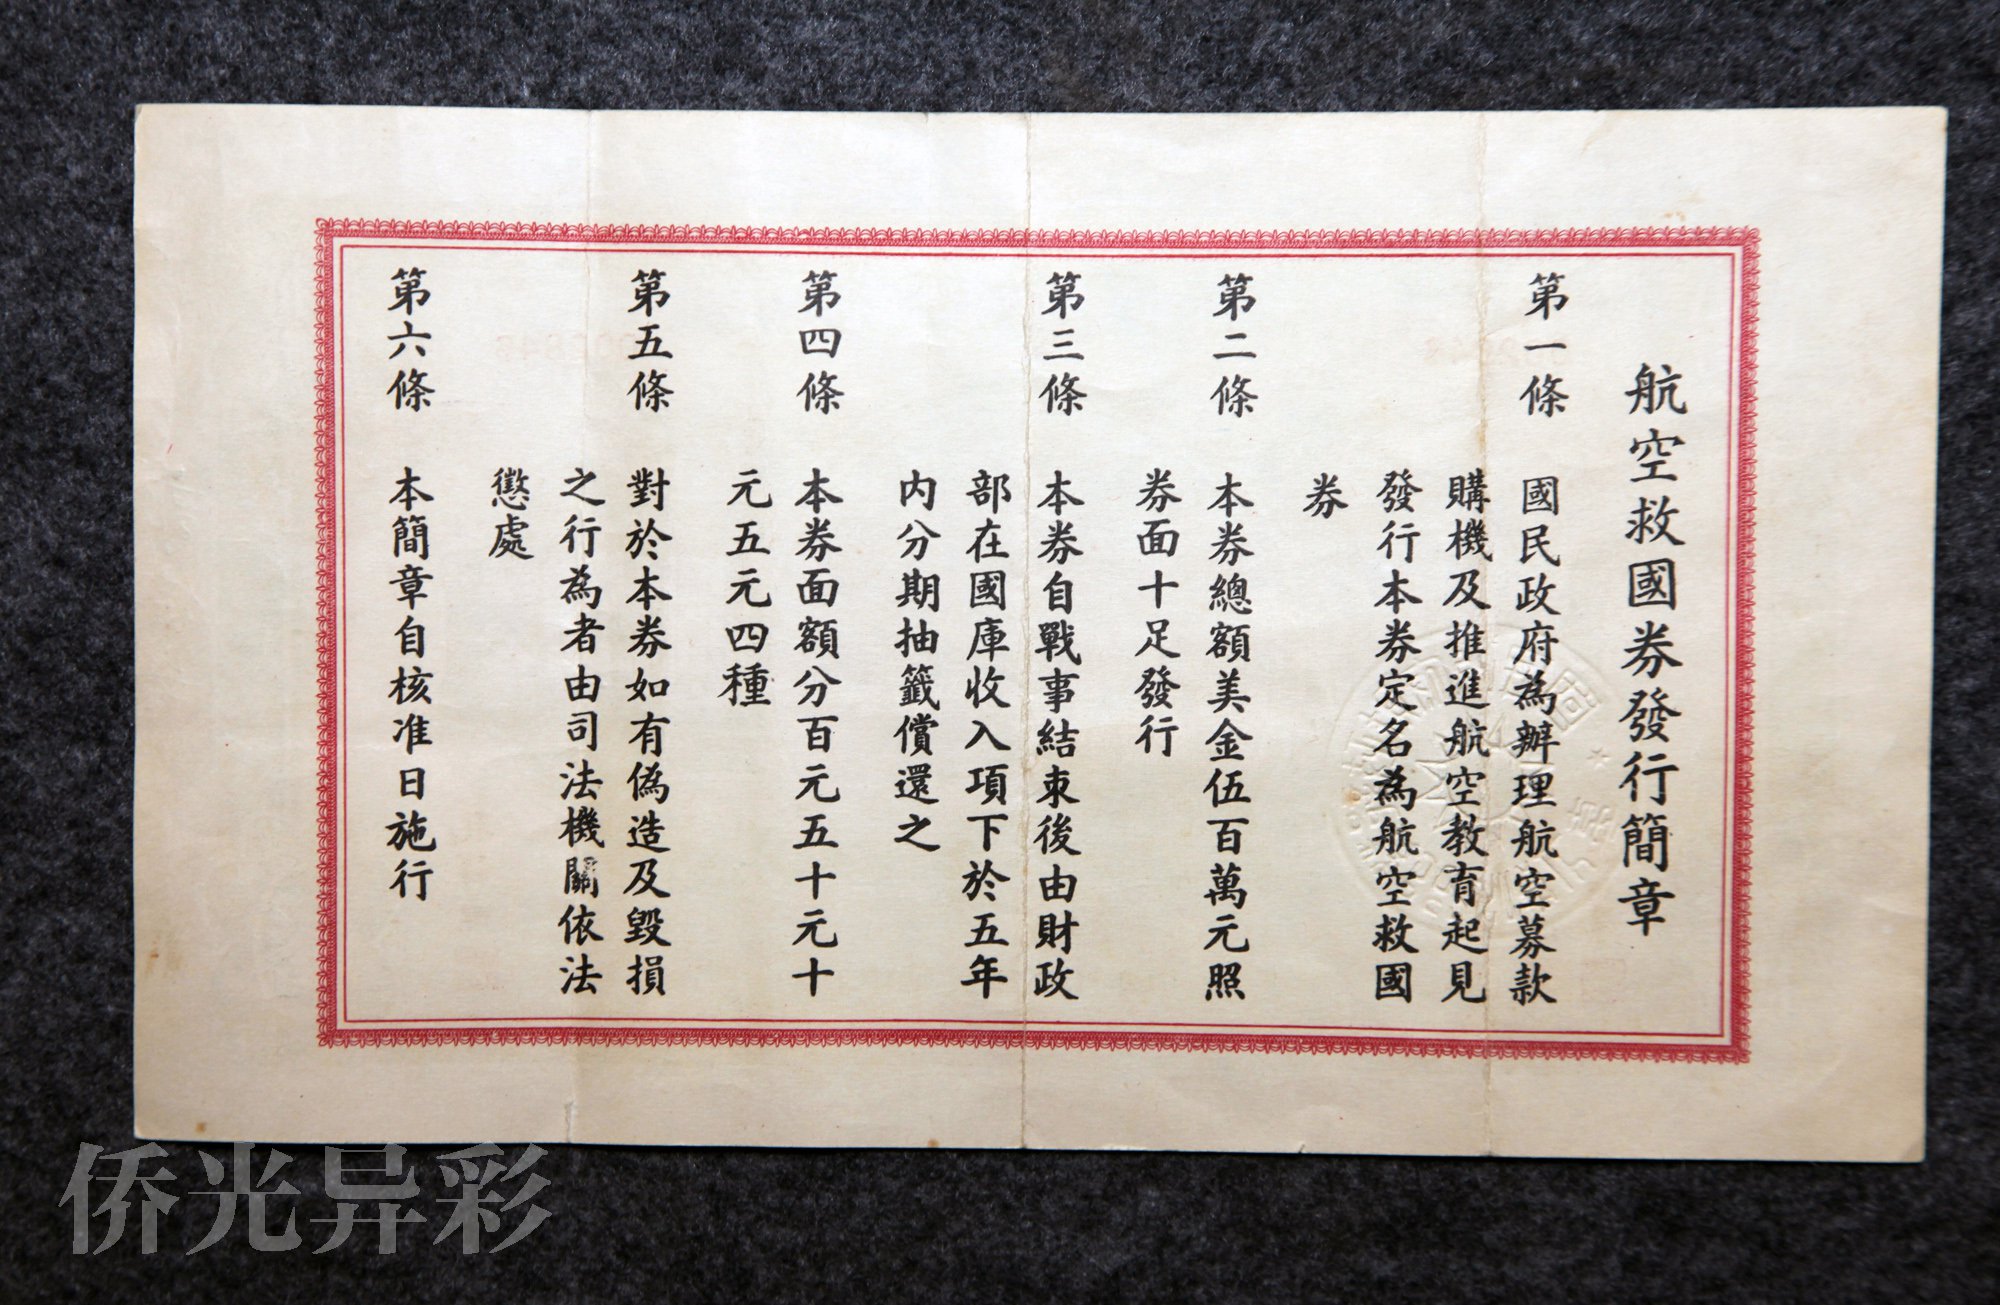 航空救國券發行簡章
第一條 國民政府為辦理航空募款
購機及推進航空教育起見
發行本券定名為航空救國
券
第二條 本券總額美金伍百萬元照
券面十足發行
第三條 本券自戰事結束後由財政
部在國庫收入項下於五年
内分期抽籤償還之
第四條 本券面額分百元五十元十
元五元四種
第五條 對於本券如有偽造及毀損
之行為者由司法機關依法
懲處
第六條 本簡章自核准日施行
侨光异彩